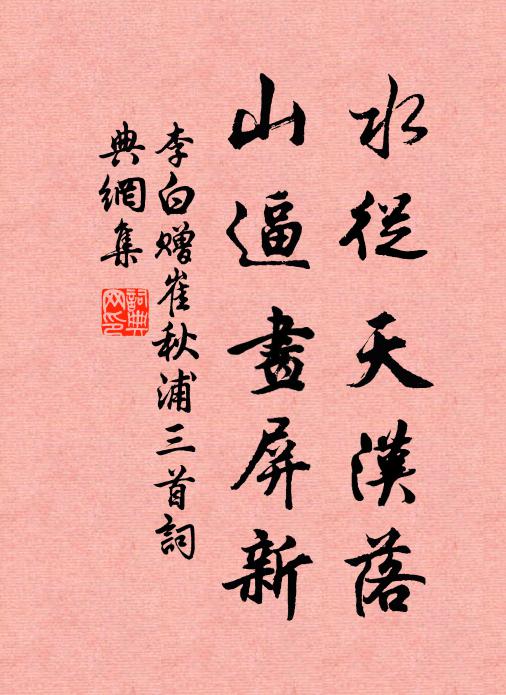 水從天漢落
山逼畫屏新
李白贈崔秋浦三首詞
典網集
詞典網印